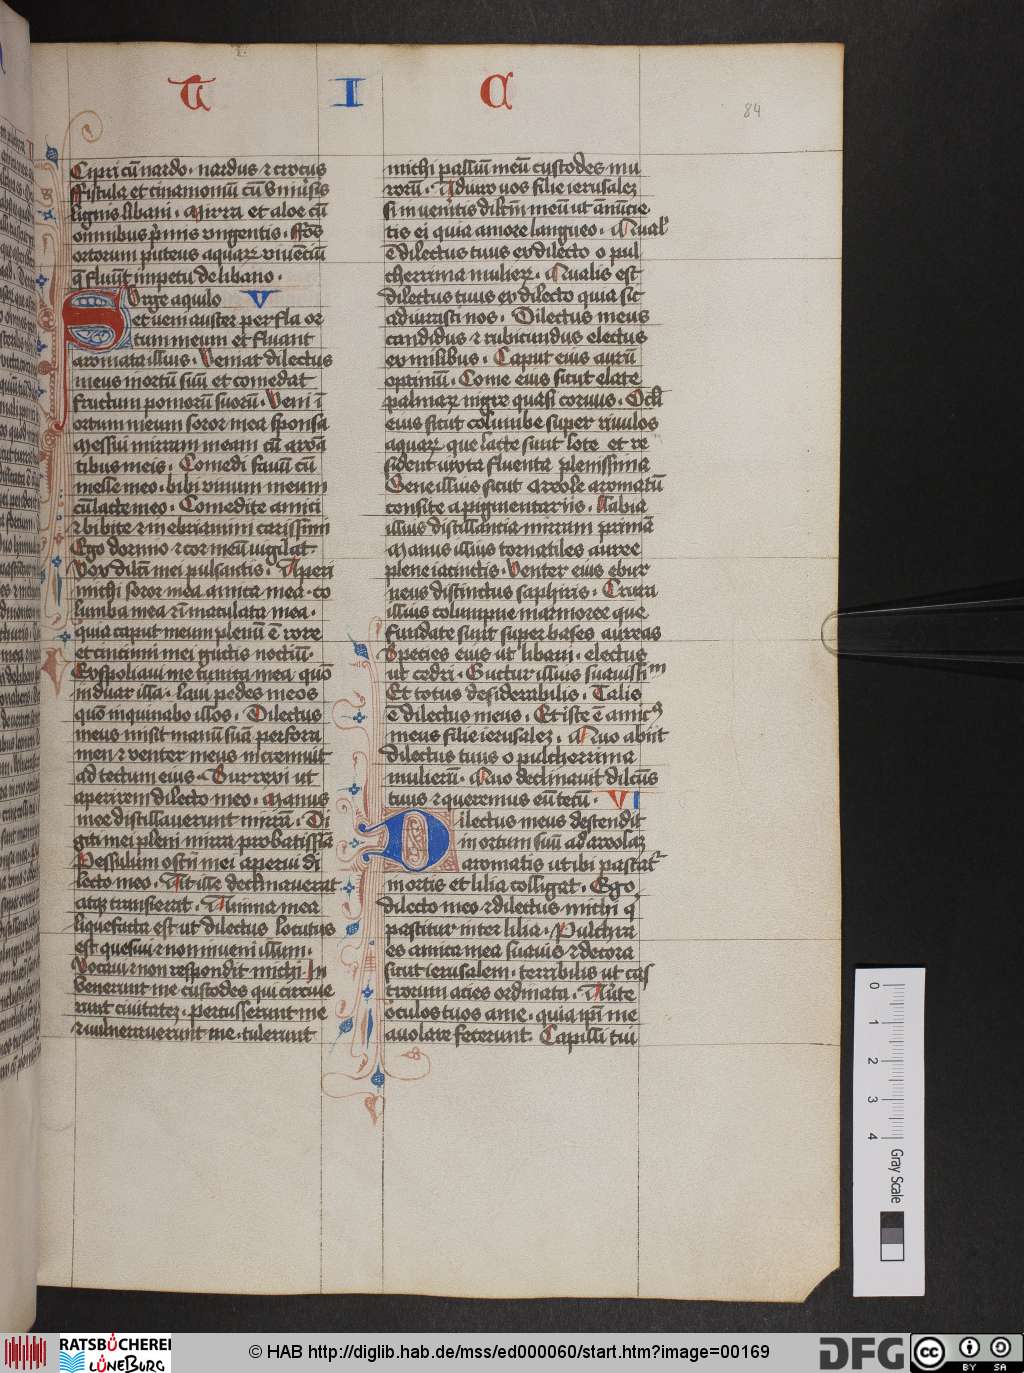 T I C
84
Cipri cū nardo · nardus ⁊ crocus
Fistula et cinamomū cū vniu͛sis
lignis libani · Mirra et aloe cū
omnibus p̄mis vngentis · Fōs
ortorum puteus aquarꝝ viuēciū
q̄ fluūt impetu de libano ·
Surge aquilo V
et veni auster perfla or
tum meum et fluant
aromata illius · Veniat dilectus
meus in ortū suū et comedat
fructum pomorū suorū · Veni ī
ortum meum soror mea sponsa
Messui mirram meam cū aroa
tibus meis · Comedi fauū cū
melle meo · bibi vinum meum
cū lacte meo · Comedite amici
⁊ bibite ⁊ inebriamini carissimi
Ego dormio ⁊ cor meū vigilat
Vox dilc̄i mei pulsantis · Aperi
michi soror mea amica mea · co
lumba mea ⁊ īmaculata mea ·
quia caput meum plenū ē rore
et cincinni mei guttis noctiū ·
Expoliaui me tunica mea quō
induar illa · laui pedes meos
quō inquinabo illos · Dilectus
meus misit manū suā per fora
men ⁊ venter meus intremuit
ad tectum eius · Surrexi ut
aperirem dilecto meo · Manus
mee distillauerunt mirrā · Di
giti mei pleni mirra probatissīa
Pessulum ostii mei aperui di
lecto meo · At ille declinauerat
atqꝫ transierat · Anima mea
liquefacta est ut dilectus locutus
est quesiui ⁊ non inueni illum ·
Vocaui ⁊ non respondit michi · In
venerunt me custodes qui circuie
runt ciuitatez · percusserunt me
⁊ uulnerauerunt me · tulerunt
michi palliū meū custodes mu
rorū · Adiuro uos filie ierusalez
si inuenͥtis dilc̄m meū ut ānūcie
tis ei quia amore langueo · Qual'
ē dilectus tuus ex dilecto o pul
cherrima mulierꝝ · Qualis est
dilectus tuus ex dilecto quia sic
adiurasti nos · Dilectus meus
candidus ⁊ rubicundus electus
ex milibus · Caput eius aurū
optimū · Come eius sicut elate
palmarꝝ nigre quasi coruus · Ocl'i
eius sicut columbe super riuulos
aquarꝝ que lacte sunt lote et re
sident iuxta fluenta plenissima
Gene illius sicut areole aromatū
consite a pigmentariis · Labia
illius distillancia mirram primā
Manus illius tornatiles auree
plene iacinctis · Venter eius ebur
neus distinctus saphiris · Crura
illius columpne marmoree que
fundate sunt super bases aureas
Species eius ut libani · electus
ut cedri · Guttur illius suauissiᵐ
Et totus desiderabilis · Talis
ē dilectus meus · Et iste ē amicꝰ
meus filie ierusalez · Quo abiit
dilectus tuus o pulcherrima
mulierū · Quo declinauit dilcūs
tuus ⁊ queremus eū tecū · VI
Dilectus meus descendit
in ortum suū ad areolaꝫ
aromatis ut ibi pascat᷑
in ortis et lilia colligat · Ego
dilecto meo ⁊ dilectus michi q̄
pascitur inter lilia · Pulchra
es amica mea suauis ⁊ decora
sicut ierusalem · terribilis ut cas
trorum acies ordinata · Au͛te
oculos tuos a me · quia ip̄i me
auolare fecerunt · Capilli tui
0 1 2 3 4
Gray Scale
RATSBÜCHEREI
LÜNEBURG
© HAB http://diglib.hab.de/mss/ed000060/start.htm?image=00169
DFG
cc BY SA